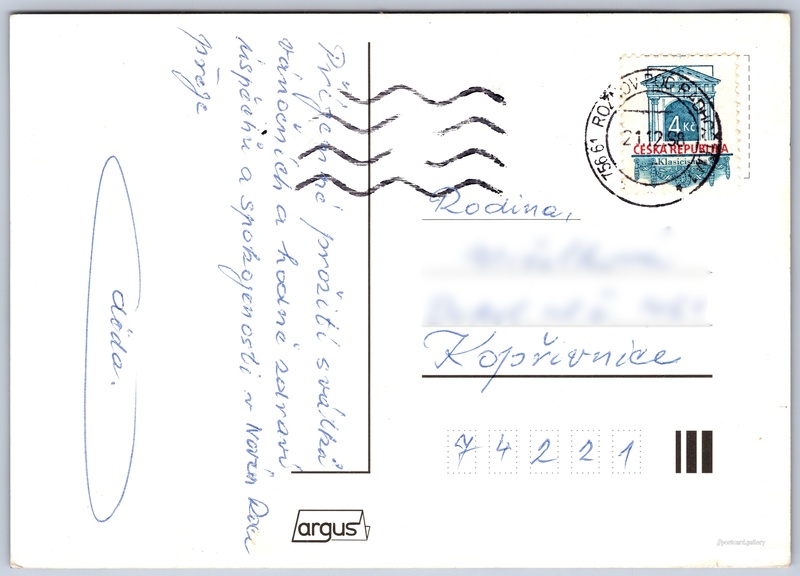 Příjemné prožití svátků
vánočních a hodně zdraví
úspěchů a spokojenosti v Novém Roce
přeje
děda.
Rodina,
Kopřivnice
7 4 2 2 1
756 61 ROŽNOV POD RADH
21.12.98
4 Kč
ČESKÁ REPUBLIKA
Klasicis
argus